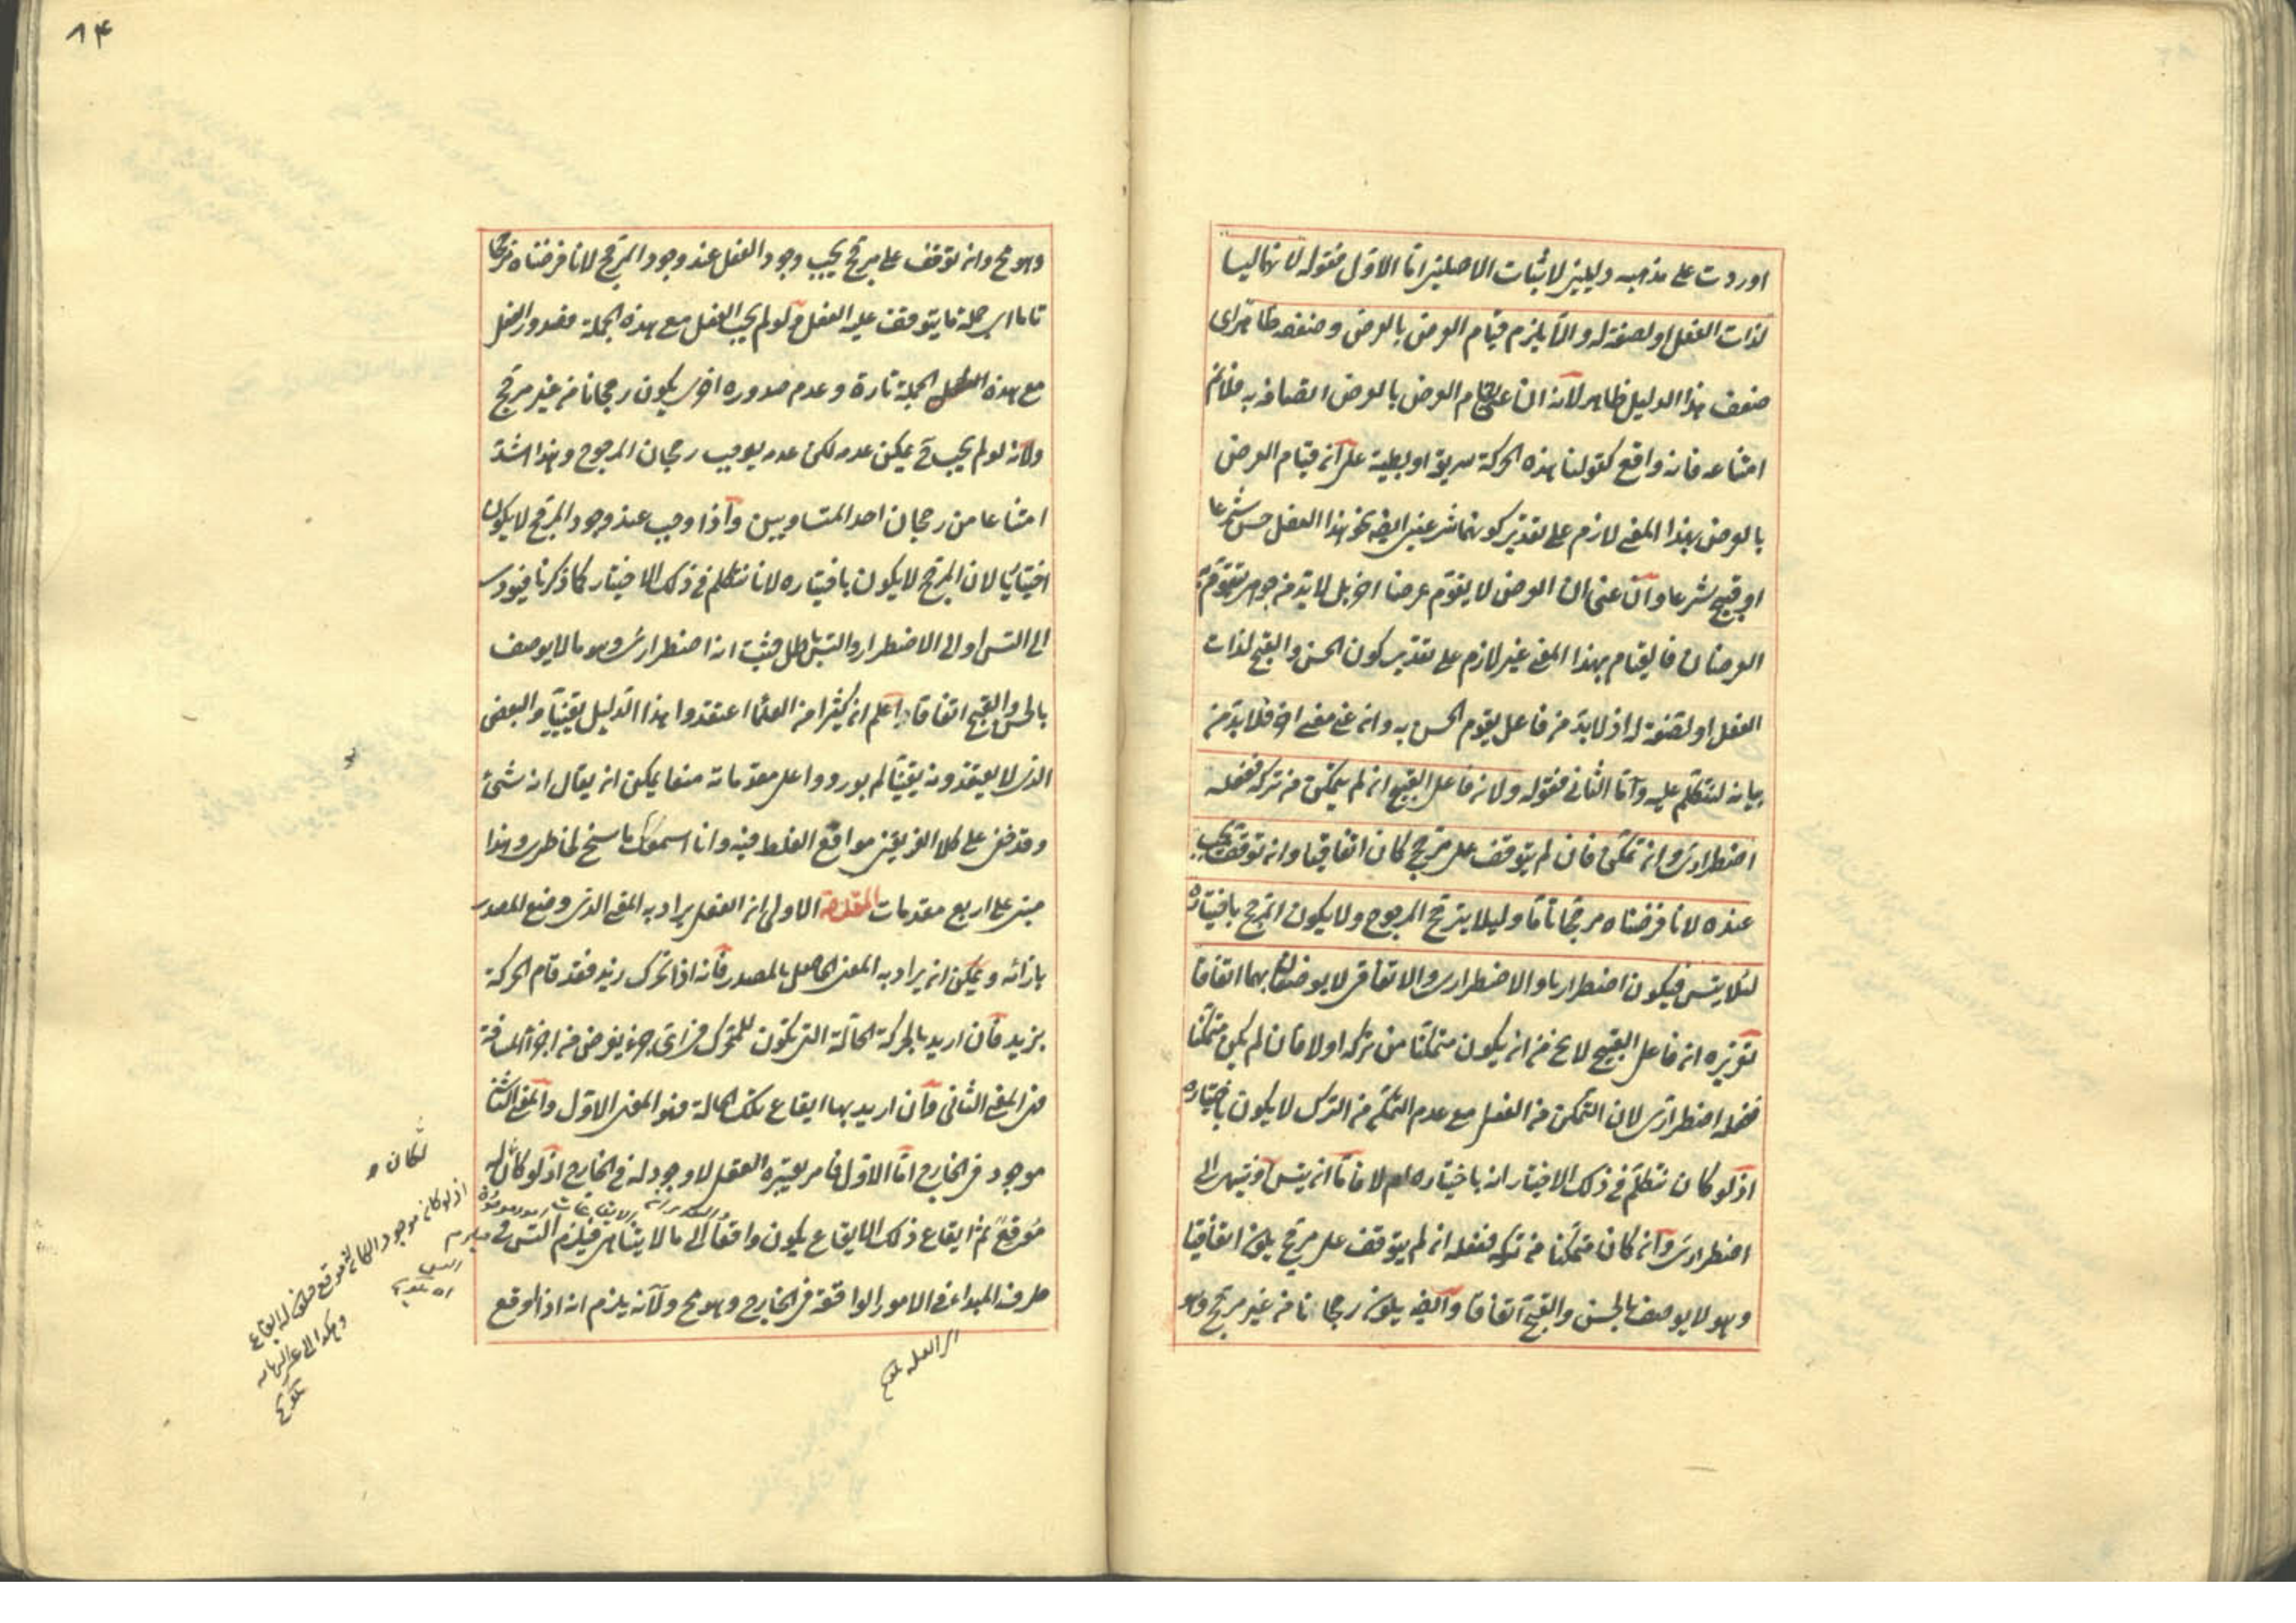 اوردت على مذهبه دليلين لاثبات الاصلين اما الاول فقوله لانهما ليسا
لذات الفعل او لصفة له والا يلزم قيام العرض بالعرض وضعفه ظاهر اى
ضعف هذا الدليل ظاهر لانه ان عنى بقيام العرض بالعرض اتصافه به فلا نم
امتناعه فانه واقع كقولنا هذه الحركة سريعة او بطيئة على انه قيام العرض
بالعرض بهذا المعنى لازم على تقدير كونهما شرعيين ايضا نحو هذا الفعل حسن شرعا
او قبيح شرعا وان عنى ان العرض لا يقوم عرضا اخر بل لا بد من جوهر يتقوم به
العرضان فالقيام بهذا المعنى غير لازم على تقدير كون الحسن والقبح لذات
الفعل او لصفة له اذ لا بد من فاعل يقوم الحسن به وان عنى معنى اخر فلا بد من
بيانه لنتكلم عليه واما الثانى فقوله ولان فاعل القبيح ان لم يتمكن من تركه ففعله
اضطرارى وان تمكن فان لم يتوقف على مرجح كان اتفاقيا وان توقف يجب
عنده لانا فرضناه مرجحا تاما وليلا يترجح المرجوح ولا يكون المرجح باختياره
لئلا يتس فيكون اضطراريا والاضطرارى والاتفاقى لا يوصفان بهما اتفاقا
تقريره ان فاعل القبيح لا يخ من ان يكون متمكنا من تركه اولا فان لم يكن متمكنا
ففعله اضطرارى لان التمكن من الفعل مع عدم التمكن من الترك لا يكون باختياره
اذ لو كان نتكلم فى ذلك الاختيار انه باختياره ام لا فاما ان يتس او ينتهى الى
اضطرارى وان كان متمكنا من تركه ففعله ان لم يتوقف على مرجح يكون اتفاقيا
وهو لا يوصف بالحسن والقبح اتفاقا وايضا يكون رجحانا من غير مرجح وهو
٨٤
وهو مح وان توقف على مرجح يجب وجود الفعل عند وجود المرجح لانا فرضناه مرجحا
تاما اى جملة ما يتوقف عليه الفعل فلو لم يجب الفعل مع هذه الجملة فصدور الفعل
مع هذه الجملة تارة وعدم صدوره اخرى يكون رجحانا من غير مرجح
ولانه لو لم يجب ح يمكن عدمه لكن عدمه يوجب رجحان المرجوح وهذا اشد
امتناعا من رجحان احد المتساويين واذا وجب عند وجود المرجح لا يكون
اختياريا لان المرجح لا يكون باختياره لانا نتكلم فى ذلك الاختيار كما ذكرنا فيؤدى
الى التس او الى الاضطرار والتس باطل فثبت انه اضطرارى وهو مما لا يوصف
بالحسن والقبح اتفاقا واعلم ان كثيرا من العلماء اعتقدوا هذا الدليل يقينيا والبعض
الذى لا يعتقدونه يقينيا لم يوردوا على مقدماته منعا يمكن ان يقال انه شئ
وقد خفى على كلا الفريقين مواقع الغلط فيه وانا اسمعك ما سنح لخاطرى وهذا
مبنى على اربع مقدمات المقدمة الاولى ان الفعل يراد به المعنى الذى وضع المصدر
بازائه ويمكن ان يراد به المعنى الحاصل بالمصدر فانه اذا تحرك زيد فقد قام الحركة
بزيد فان اريد بالحركة الحالة التى تكون للمتحرك فى اى جزء يفرض من اجزاء المسافة
فهى المعنى الثانى وان اريد بها ايقاع تلك الحالة فهو المعنى الاول والمعنى الثانى
موجود فى الخارج اما الاول فامر يعتبره العقل لا وجود له فى الخارج اذ لو كان له
موقع ثم ايقاع ذلك الايقاع يكون واقعا الى ما لا يتناهى فيلزم التس فى
طرف المبدا فى الامور الواقعة فى الخارج وهو مح ولانه يلزم انه اذا اوقع
لكان
اذ لو كان موجودا لكان له موقع فيكون له ايقاع
وهكذا الى غير النهاية
تلويح
اى العلة تلويح